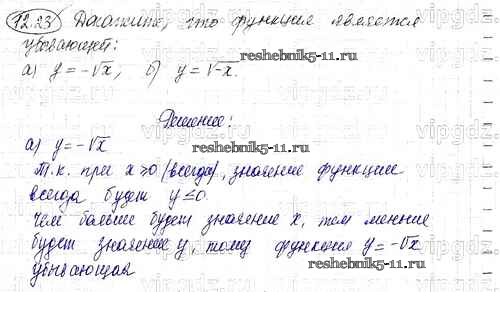 12.23) Докажите, что функция является
убывающей:
а) y = -√x; б) y = √-x.
reshebnik5-11.ru
Решение:
reshebnik5-11.ru
а) y = -√x
Т.к. при x ≥ 0 (всегда), значение функции
всегда будет y ≤ 0.
Чем больше будет значение x, тем меньше
будет значение y, тому функция y = -√x
reshebnik5-11.ru
убывающая